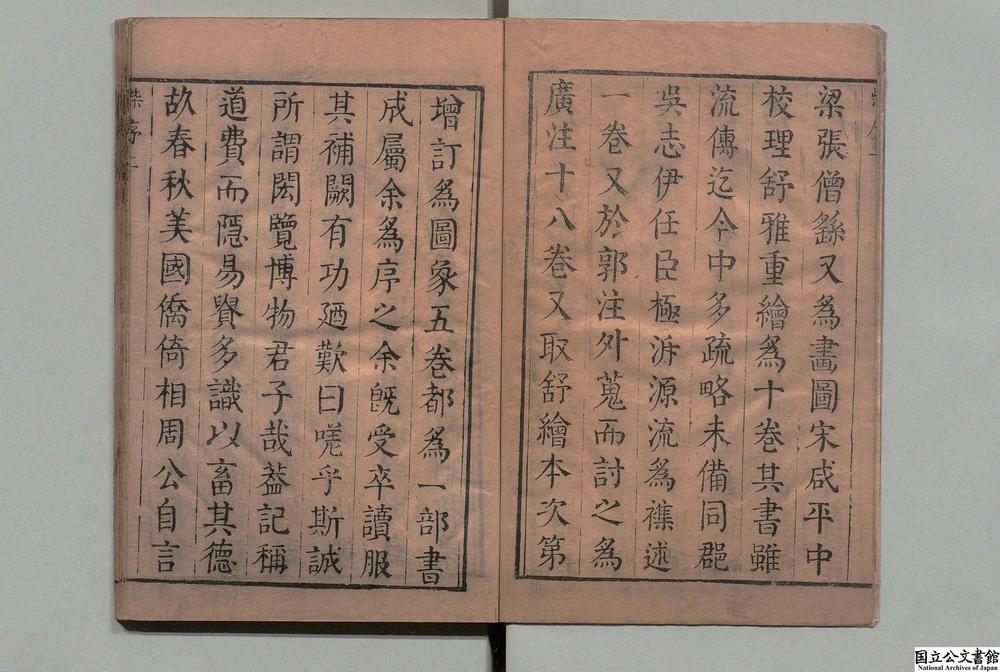 梁張僧繇又為畫圖宋咸平中
校理舒雅重繪為十卷其書雖
流傳迄今中多疏略未備同郡
吳志伊任臣極泝源流為襍述
一卷又於郭注外蒐而討之為
廣注十八卷又取舒繪本次第
增訂為圖象五卷都為一部書
成屬余為序之余旣受卒讀服
其補闕有功廼歎曰嗟乎斯誠
所謂閎覽博物君子哉葢記稱
道費而隱易賛多識以畜其德
故春秋美國僑倚相周公自言
柴序二
国立公文書館
National Archives of Japan